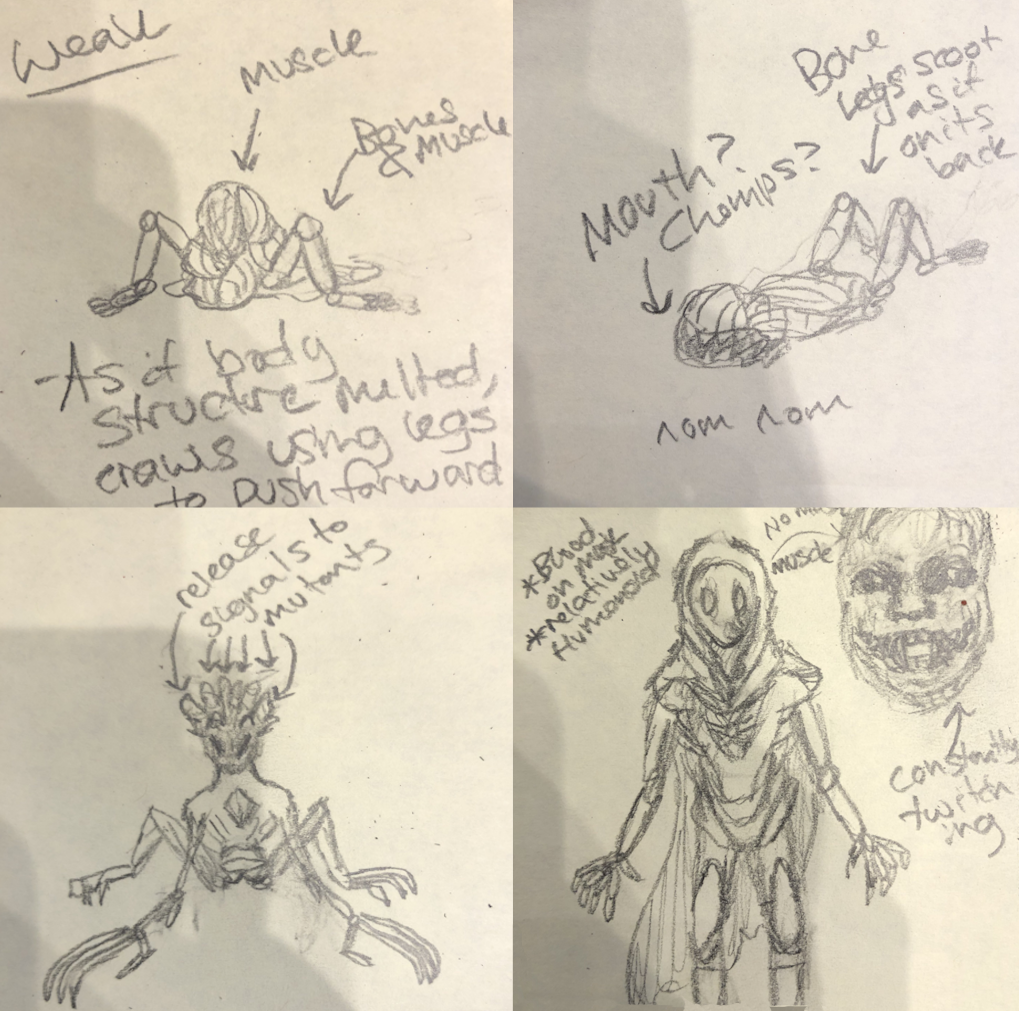 Weak
Muscle
Bones
& Muscle
-As if body
structure melted,
craws using legs
to push forward
Bone
Legs scoot
as if
on its
back
Mouth?
Chomps?
nom nom
release
signals to
mutants
*Blood
on mask
*relatively
Humanoid
muscle
constantly
twitch
ing